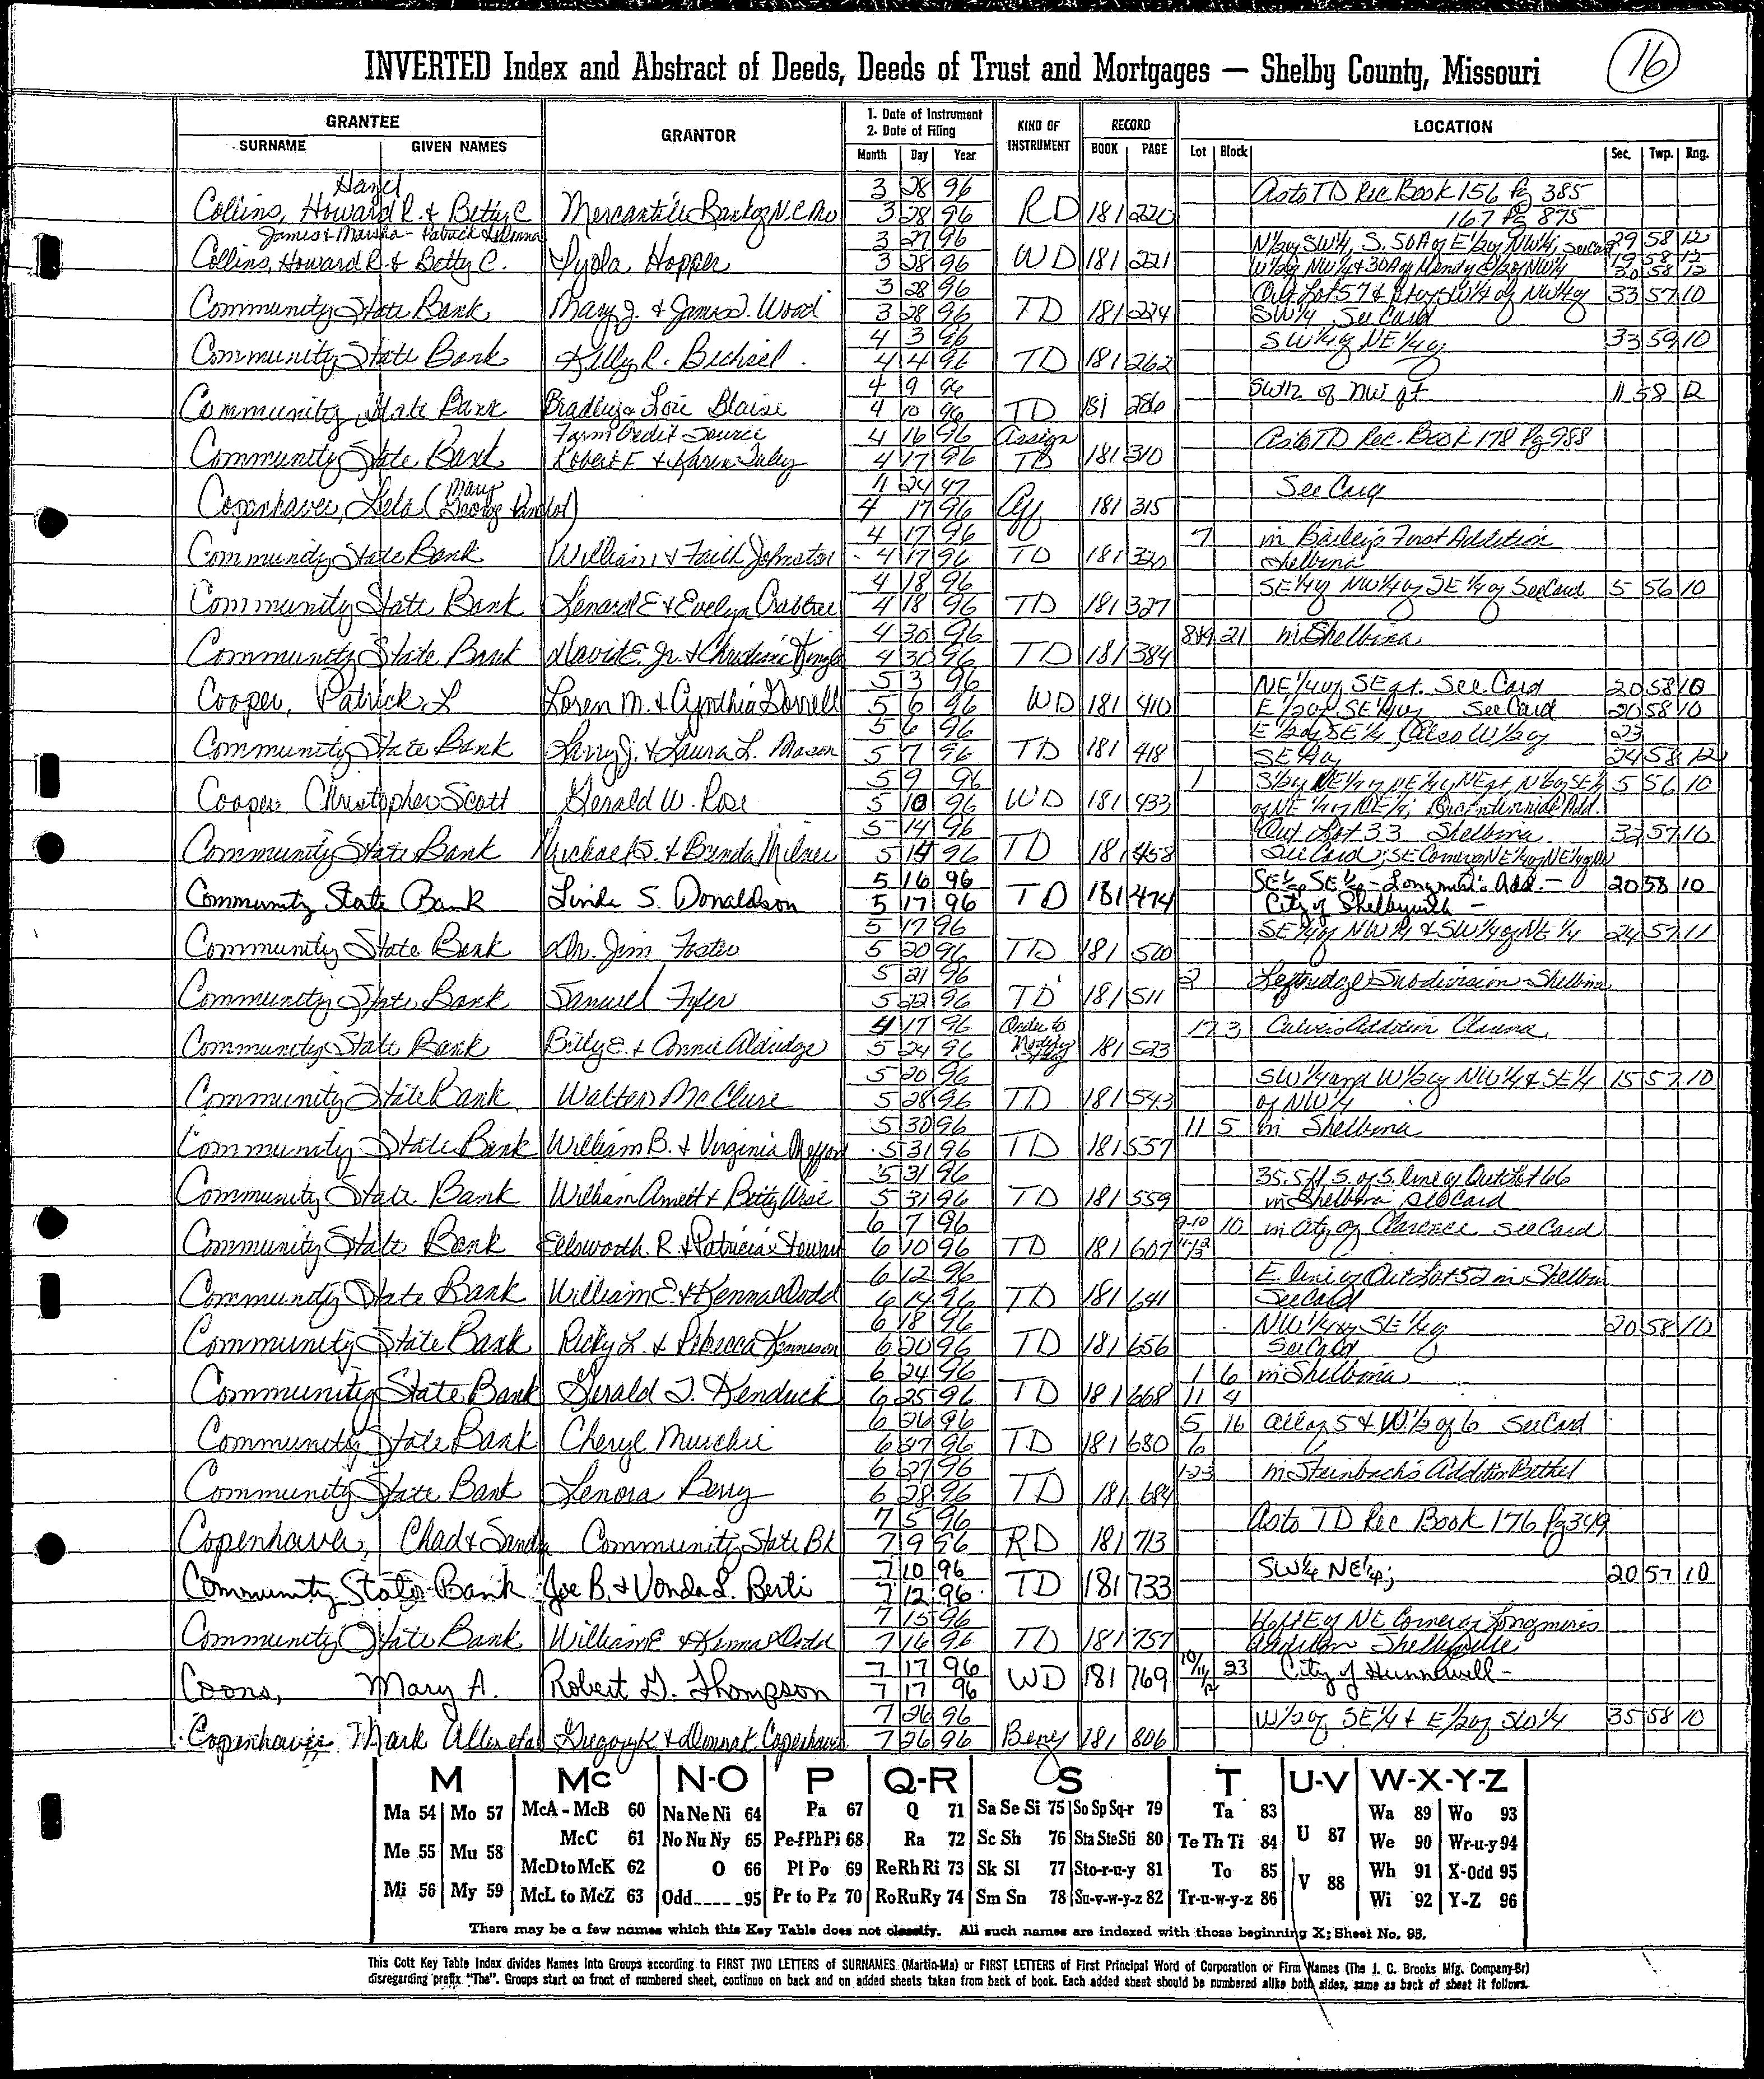 INVERTED Index and Abstract of Deeds, Deeds of Trust and Mortgages — Shelby County, Missouri 16
GRANTEE GRANTOR 1. Date of Instrument 2. Date of Filing KIND OF INSTRUMENT RECORD LOCATION
SURNAME GIVEN NAMES Month Day Year BOOK PAGE Lot Block Sec. Twp. Rng.
Hazel 3 28 96 As to TD Rec Book 156 Pg 385
Collins, Howard R. & Betty C Mercantile Bank of N.C. Mo 3 28 96 RD 181 220 167 Pg 875
James & Marsha - Patrick & Donna 3 27 96 N½ of SW¼, S. 50A of E½ of NW¼; See Card 29 58 12
Collins, Howard R. & Betty C. Lyola Hopper 3 28 96 WD 181 221 W½ of NW¼ & 30A of W end of E½ of NW¼ 19 58 12
20 58 12
3 28 96 Out Lot 57 & SW¼ of NW¼ of 33 57 10
Community State Bank Mary J. & James D. Wood 3 28 96 TD 181 224 SW¼ See Card
4 3 96 SW¼ of NE¼ of 33 59 10
Community State Bank Kelly R. Bechsel 4 4 96 TD 181 262
4 9 96 SW½ of NW qt 11 58 12
Community State Bank Bradley & Lori Blaise 4 10 96 TD 181 286
Farm Credit Source 4 16 96 Assign As to TD Rec. Book 178 Pg 988
Community State Bank Robert F & Karen 4 17 96 TD 181 310
Mary 11 24 47 See
Copenhaver, Lela (George 4 17 96 Aff 181 315
4 17 96 7 in Bailey's First Addition
Community State Bank William & Faith Johnston 4 17 96 TD 181 320 Shelbina
4 18 96 SE¼ of NW¼ of SE¼ of See Card 5 56 10
Community State Bank Lenard E & Evelyn Crabtree 4 18 96 TD 181 327
4 30 96 8&9 21 in Shelbina
Community State Bank David E. Jr. & Christine 4 30 96 TD 181 384
5 3 96 NE¼ of SE qt. See Card 20 58 10
Cooper, Patrick L Loren M. & Cynthia Gorrell 5 6 96 WD 181 410 E½ of SE¼ of See Card 20 58 10
5 6 96 E½ of SE¼, Also W½ of 23
Community State Bank Larry J. & Laura L. Mason 5 7 96 TD 181 418 SE¼ of 24 58 12
5 9 96 1 S½ of NE¼ of NE¼ of NE qt, N½ of SE¼ 5 56 10
Cooper Christopher Scott Gerald W. Rose 5 10 96 WD 181 433 of NE¼ of NE¼; Bicentennial Add.
5 14 96 Out Lot 33 Shelbina 32 57 10
Community State Bank Michael S. & Brenda Milner 5 14 96 TD 181 458 See Card; SE Corner of NE¼ of NE¼ of
5 16 96 SE¼ SE¼ - Longmire's Add. - 20 58 10
Community State Bank Linda S. Donaldson 5 17 96 TD 181 474 City of Shelbyville -
5 17 96 SE¼ of NW¼ & SW¼ of NE¼ 24 57 11
Community State Bank Dr. Jim Foster 5 20 96 TD 181 500
5 21 96 2 Subdivision Shelbina
Community State Bank Samuel Tyler 5 22 96 TD 181 511
4 17 96 Order to 17 3 Addition Clarence
Community State Bank Billy E. & Connie Aldridge 5 24 96 Modify 181 523
5 20 96 SW¼ and W½ of NW¼ & SE¼ 15 57 10
Community State Bank Walter McClure 5 28 96 TD 181 543 of NW¼
5 30 96 11 5 in Shelbina
Community State Bank William B. & Virginia Mefford 5 31 96 TD 181 557
5 31 96 35.5 ft S. of S. line of Out Lot 66
Community State Bank William Amett & Betty Wise 5 31 96 TD 181 559 in Shelbina See Card
6 7 96 9-10 10 in City of Clarence See Card
Community State Bank Ellsworth R. & Patricia Stewart 6 10 96 TD 181 607
6 12 96 E. line of Out Lot 52 in Shelbina
Community State Bank William E. & Kenna Dodd 6 14 96 TD 181 641 See Card
6 18 96 NW¼ of SE¼ of 20 58 10
Community State Bank Ricky L. & Rebecca Kennison 6 20 96 TD 181 656 See Card
6 24 96 1 6 in Shelbina
Community State Bank Gerald T. Kendrick 6 25 96 TD 181 668 11 4
6 26 96 5 16 all of 5 & W½ of 6 See Card
Community State Bank Cheryl Murchie 6 27 96 TD 181 680 6
6 27 96 1-2-3 in Steinbach's Addition Bethel
Community State Bank Lenora Berry 6 28 96 TD 181 684
7 5 96 As to TD Rec Book 176 Pg 349
Copenhaver, Chad & Sandy Community State Bk 7 9 96 RD 181 713
7 10 96 SW¼ NE¼; 20 57 10
Community State Bank Joe B. & Vonda L. Berti 7 12 96 TD 181 733
7 15 96 E of NE Corner of Longmires
Community State Bank William E & Kenna Dodd 7 16 96 TD 181 757 Addition Shelbyville
7 17 96 10/11 23 City of Hunnewell -
Coons, Mary A. Robert G. Thompson 7 17 96 WD 181 769 12
7 26 96 W½ of SE¼ & E½ of SW¼ 35 58 10
Copenhaver Mark Allen etal Gregory K & Donna K Copenhaver 7 26 96 Beny 181 806
M Mc N-O P Q-R S T U-V W-X-Y-Z
Ma 54 Mo 57 McA - McB 60 Na Ne Ni 64 Pa 67 Q 71 Sa Se Si 75 So Sp Sq-r 79 Ta 83 Wa 89 Wo 93
Me 55 Mu 58 McC 61 No Nu Ny 65 Pe-f Ph Pi 68 Ra 72 Sc Sh 76 Sta Ste Sti 80 Te Th Ti 84 U 87 We 90 Wr-u-y 94
McD to McK 62 O 66 Pl Po 69 Re Rh Ri 73 Sk Sl 77 Sto-r-u-y 81 To 85 V 88 Wh 91 X-Odd 95
Mi 56 My 59 McL to McZ 63 Odd-----95 Pr to Pz 70 Ro Ru Ry 74 Sm Sn 78 Su-v-w-y-z 82 Tr-u-w-y-z 86 Wi 92 Y-Z 96
There may be a few names which this Key Table does not classify. All such names are indexed with those beginning X; Sheet No. 95.
This Cott Key Table Index divides Names into Groups according to FIRST TWO LETTERS of SURNAMES (Martin-Ma) or FIRST LETTERS of First Principal Word of Corporation or Firm Names (The J. C. Brooks Mfg. Company-Br)
disregarding prefix "The". Groups start on front of numbered sheet, continue on back and on added sheets taken from back of book. Each added sheet should be numbered alike both sides, same as back of sheet it follows.